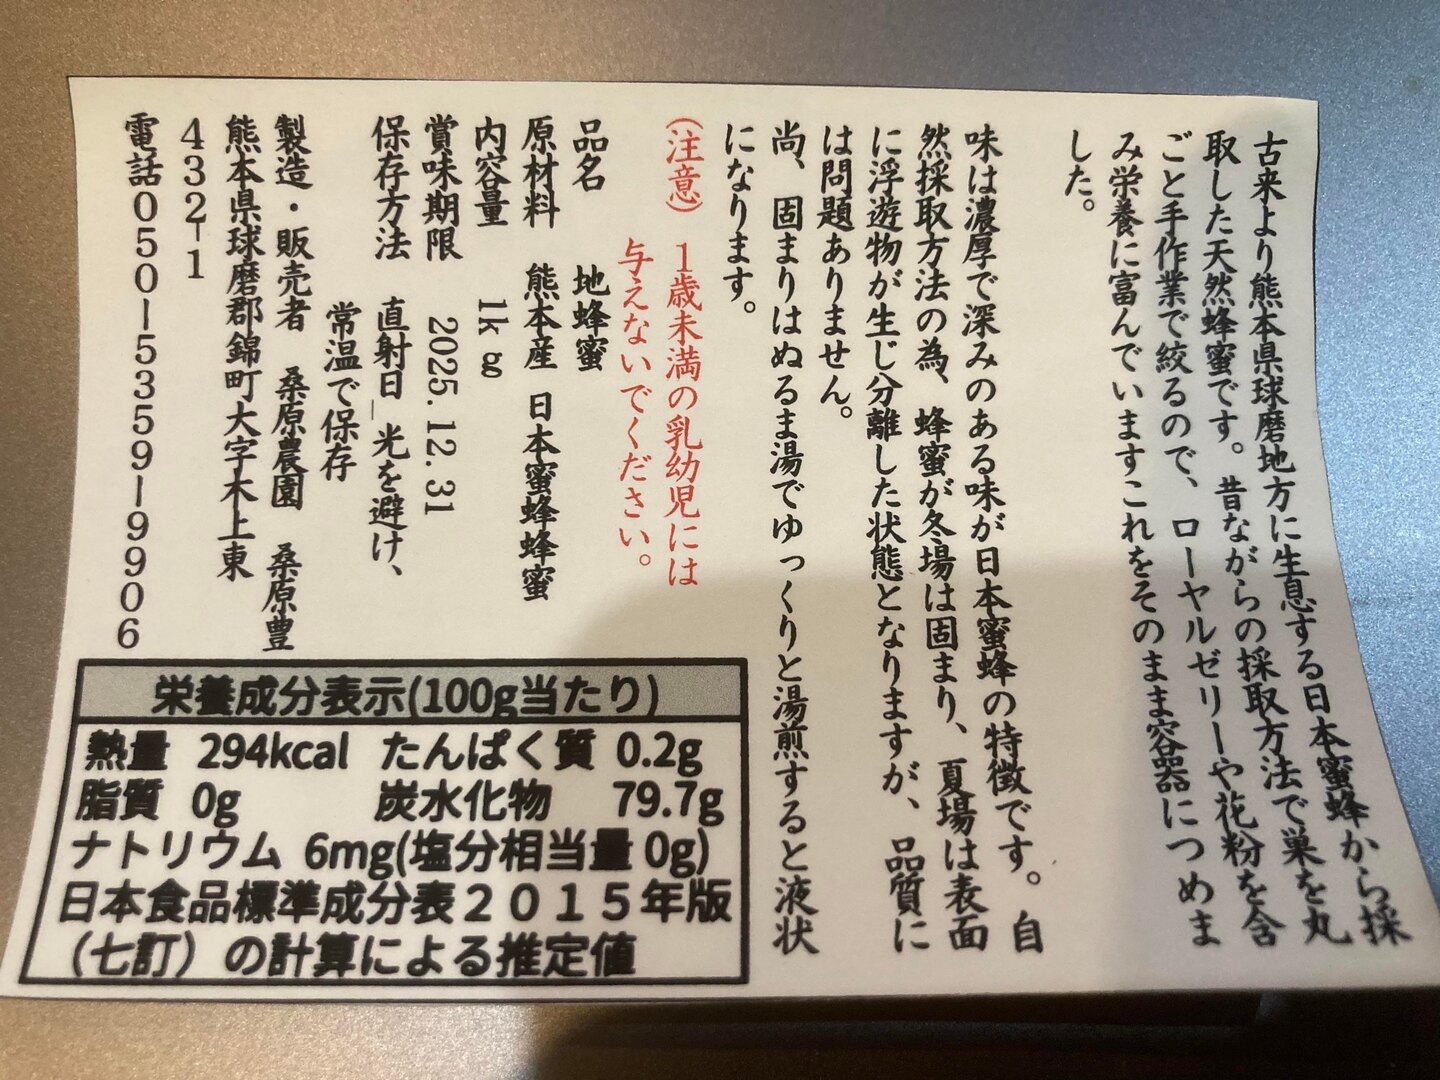 古来より熊本県球磨地方に生息する日本蜜蜂から採
取した天然蜂蜜です。昔ながらの採取方法で巣を丸
ごと手作業で絞るので、ローヤルゼリーや花粉を含
み栄養に富んでいますこれをそのまま容器につめま
した。
味は濃厚で深みのある味が日本蜜蜂の特徴です。自
然採取方法の為、蜂蜜が冬場は固まり、夏場は表面
に浮遊物が生じ分離した状態となりますが、品質に
は問題ありません。
尚、固まりはぬるま湯でゆっくりと湯煎すると液状
になります。
(注意) 1歳未満の乳幼児には
与えないでください。
品名 地蜂蜜
原材料 熊本産 日本蜜蜂蜂蜜
内容量 1kg
賞味期限 2025.12.31
保存方法 直射日_光を避け、
常温で保存
製造・販売者 桑原農園 桑原豊
熊本県球磨郡錦町大字木上東
432-1
電話050-5359-9906
栄養成分表示(100g当たり)
熱量 294kcal たんぱく質 0.2g
脂質 0g 炭水化物 79.7g
ナトリウム 6mg(塩分相当量 0g)
日本食品標準成分表２０１５年版
（七訂）の計算による推定値